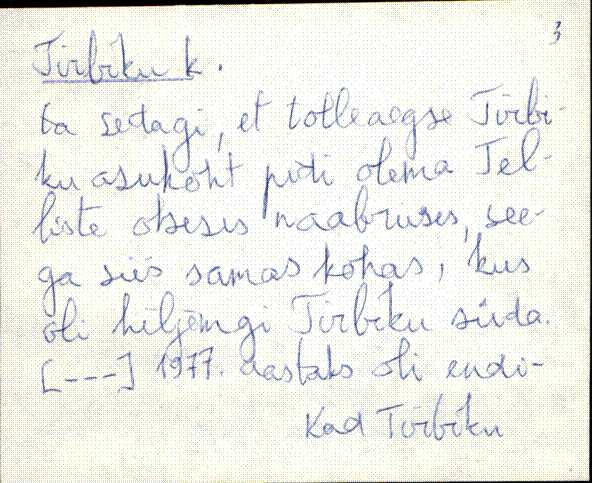 3
Tirbiku k.
ta sedagi, et tolleaegse Tirbi-
ku asukoht pidi olema Tel-
liste otseses naabruses, see-
ga siis samas kohas, kus
oli hiljemgi Tirbiku süda.
[---] 1977. aastaks oli endi-
Kad Tirbiku